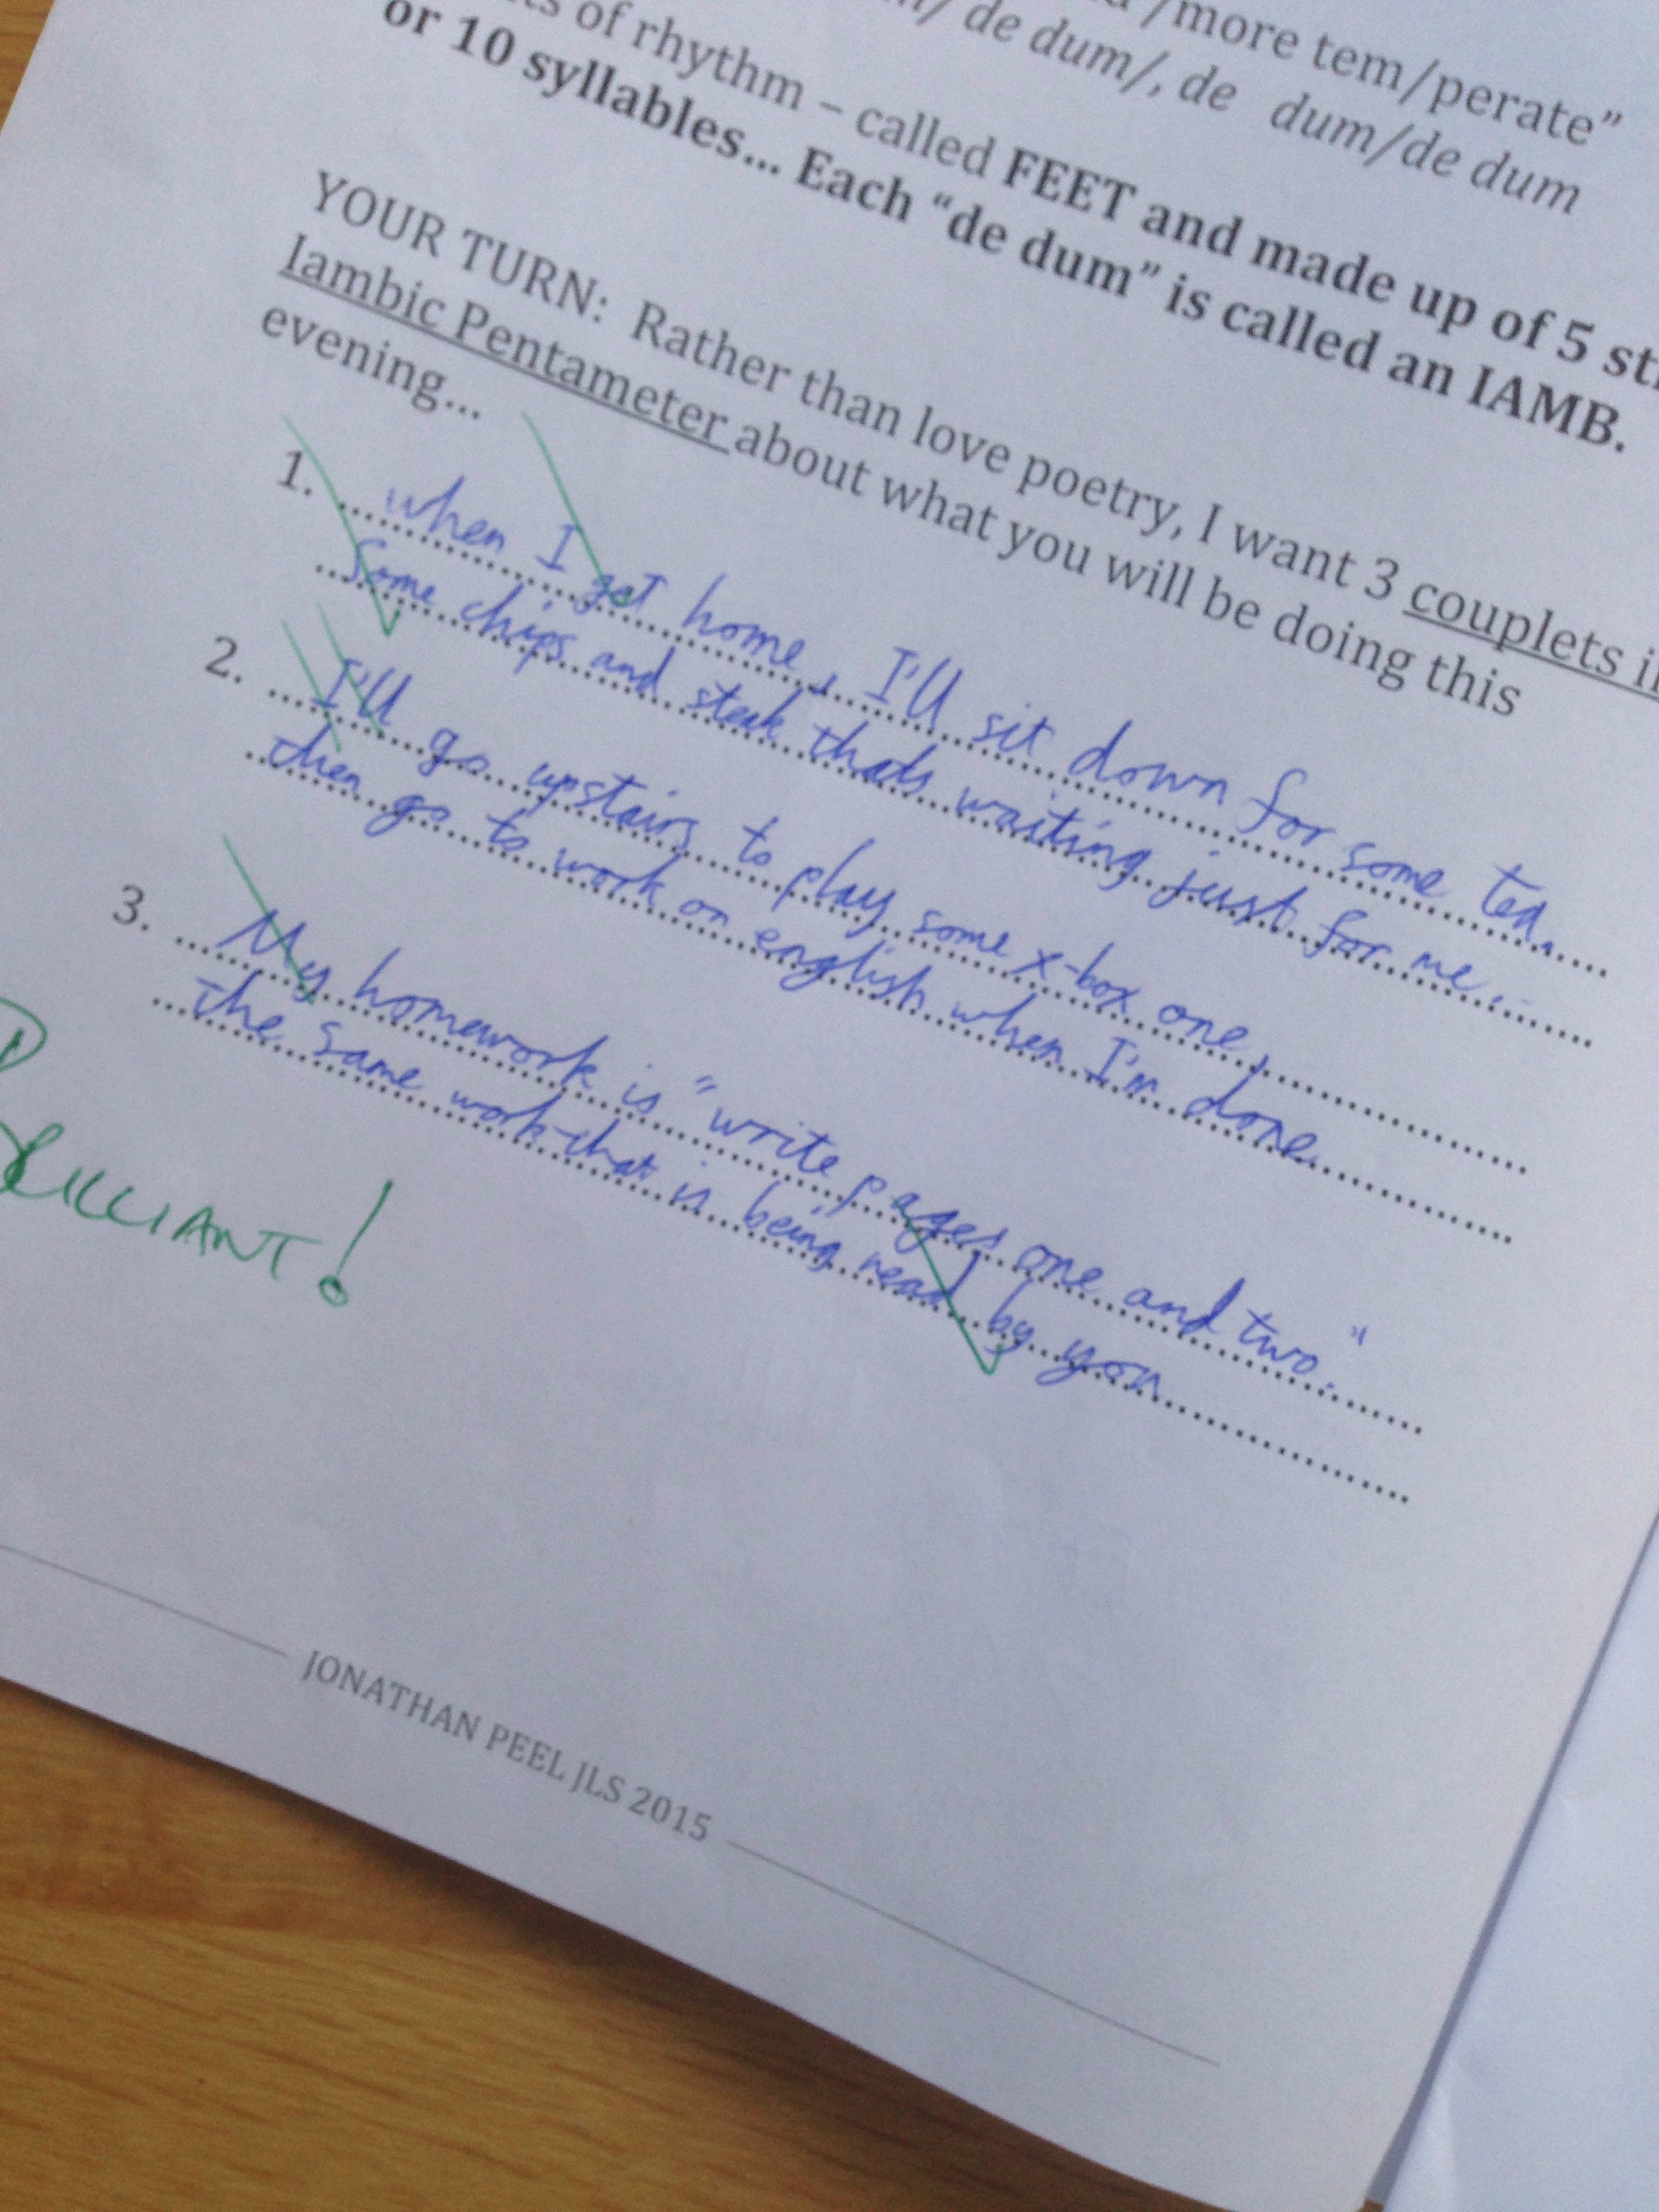 /more tem/perate"
/ de dum/, de dum/de dum
of rhythm – called FEET and made up of 5
or 10 syllables... Each "de dum" is called an IAMB.
YOUR TURN: Rather than love poetry, I want 3 couplets
Iambic Pentameter about what you will be doing this
evening...
1. when I get home, I'll sit down for some tea.
Some chips and steak thats waiting just for me..
2. I'll go upstairs to play some x-box one,
then go to work on english when I'm done.
3. My homework is "write pages one and two."
the same work that is being read by you
BRILLIANT!
JONATHAN PEEL JLS 2015